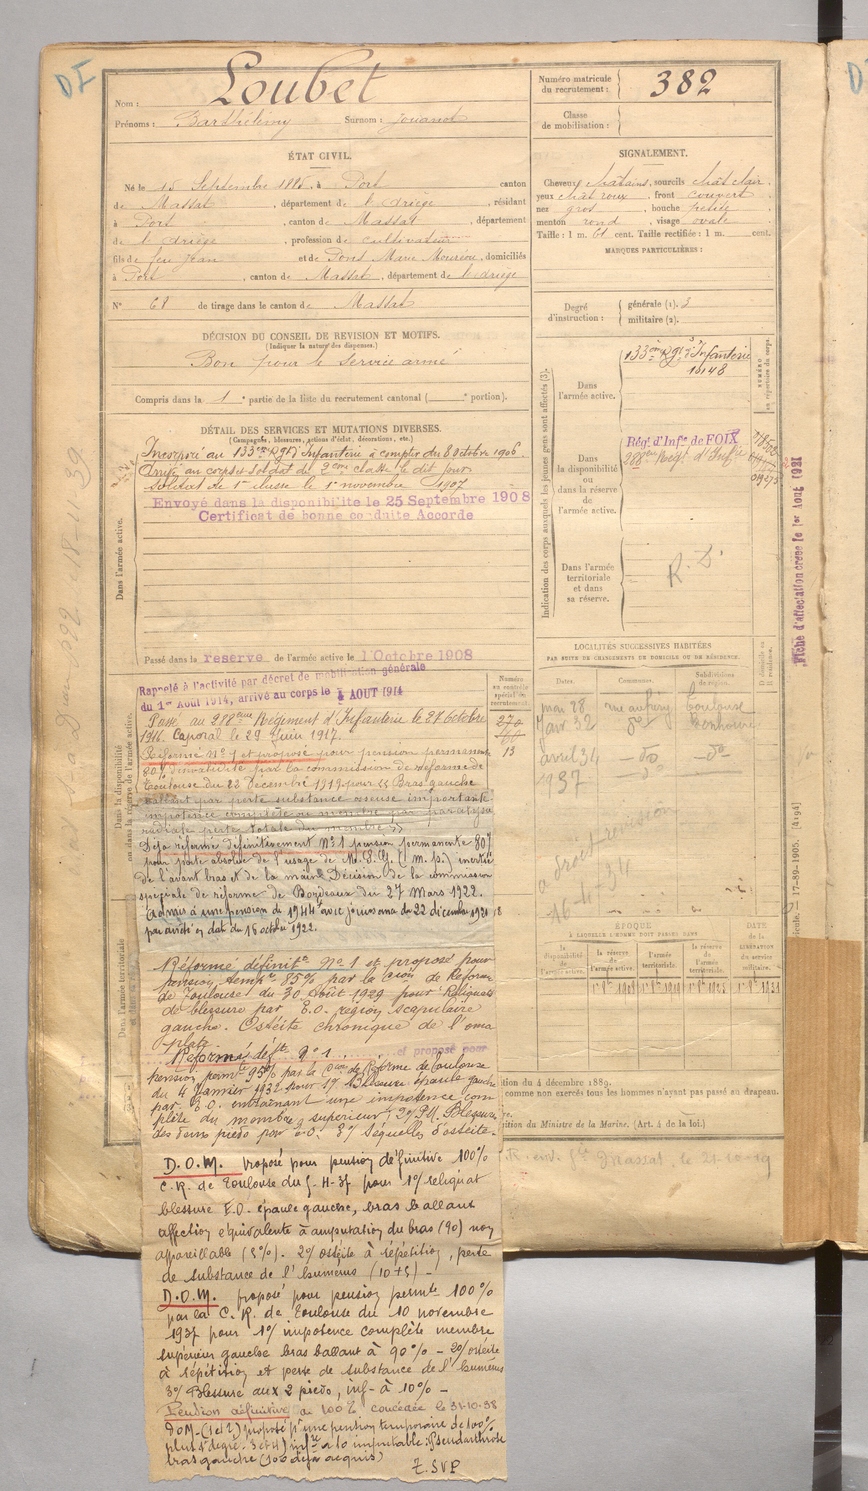 DI
Nom : Loubet
Prénoms : Barthélémy Surnom : Jouanot
Numéro matricule du recrutement : 382
Classe de mobilisation :
ÉTAT CIVIL.
Né le 15 Septembre 1885, à Port canton
de Massat, département de l'Ariège, résidant
à Port, canton de Massat, département
de l'Ariège, profession de cultivateur
fils de feu Jean et de Pons Marie, domiciliés
à Port, canton de Massat, département de l'Ariège
N° 68 de tirage dans le canton de Massat
SIGNALEMENT.
Cheveux châtains, sourcils chât clair,
yeux chât roux, front couvert
nez gros, bouche petite
menton rond, visage ovale
Taille : 1 m. 61 cent. Taille rectifiée : 1 m. cent.
MARQUES PARTICULIÈRES :
Degré d'instruction : générale (1). 3
militaire (2).
DÉCISION DU CONSEIL DE REVISION ET MOTIFS.
(Indiquer la nature des dispenses.)
Bon pour le service armé
Compris dans la 1e partie de la liste du recrutement cantonal ( e portion).
DÉTAIL DES SERVICES ET MUTATIONS DIVERSES.
(Campagnes, blessures, actions d'éclat, décorations, etc.)
Incorporé au 133me Rgt d'Infanterie à compter du 8 octobre 1906.
Arrivé au corps et soldat de 2eme classe le dit jour
Soldat de 1re classe le 1er novembre 1907
Envoyé dans la disponibilité le 25 Septembre 1908
Certificat de bonne conduite Accordé
Dans l'armée active.
Passé dans la réserve de l'armée active le 1 Octobre 1908
Indication des corps auxquels les jeunes gens sont affectés (3).
Dans l'armée active.
133eme Rgt d'Infanterie
10148
NUMÉRO au répertoire du corps.
Dans la disponibilité ou dans la réserve de l'armée active.
Rég. d'Infie de FOIX
288eme Régt d'Infie
Dans l'armée territoriale et dans sa réserve.
R. D.
Fiche d'affectation créée le 1er Août 1921
Rappelé à l'activité par décret de mobilisation générale
du 1er Août 1914, arrivé au corps le 4 AOUT 1914
Passé au 288eme Régiment d'Infanterie le 27 octobre
1916. Caporal le 29 Juin 1917.
Réformé N° 1 et proposé pour pension permanente
80% invalidité par la commission de réforme de
Toulouse du 22 Décembre 1919 pour « Bras gauche
ballant par perte substance osseuse importante
impotence complète du membre par paralysie
radiale perte totale du membre »
Déjà réformé définitivement N° 1 pension permanente 80%
pour perte absolue de l'usage de M.S.G. (m.p.) inertie
de l'avant bras et de la main Décision de la commission
spéciale de réforme de Bordeaux du 27 Mars 1922.
Admis à une pension de 1944f avec jouissance du 22 décembre 1921
par arrêté en date du 16 octobre 1922.
Réformé définitt N° 1 et proposé pour
pension tempre 85% par la Cion de Réforme
de Toulouse du 30 Août 1929 pour Reliquats
de blessure par E.O. région scapulaire
gauche. Ostéite chronique de l'omo
plate.
Réformé déft N° 1 et proposé pour
pension permte 95% par la Cion de Réforme de Toulouse
du 4 Janvier 1932 pour 1°) Blessure épaule gauche
par E.O. entraînant une impotence com
plète du membre supérieur; 2°) Blessure
des deux pieds par E.O. 3°) Séquelles d'ostéite.
D.O.M. Proposé pour pension définitive 100%
C.R. de Toulouse du 5-11-37 pour 1°) reliquat
blessure E.O. épaule gauche, bras ballant
affection équivalente à amputation du bras (90) non
appareillable (5%). 2°) ostéite à répétition, perte
de substance de l'humérus (10+5) -
D.O.M. proposé pour pension permte 100%
par la C.R. de Toulouse du 10 novembre
1937 pour 1°) impotence complète membre
supérieur gauche bras ballant à 90% - 2°) ostéite
à répétition et perte de substance de l'humérus
3°) Blessure aux 2 pieds, inf. à 10% -
Pension définitive de 100% concédée le 31-10-38
DOM - (1 et 2) proposé pr une pension temporaire de 100%
plus 1er degré. 3 et 4) infre à 10 imputable : Pseudarthrose
bras gauche (100 déjà acquis)
T. SVP
Numéro au contrôle spécial du recrutement.
274
13
LOCALITÉS SUCCESSIVES HABITÉES
PAR SUITE DE CHANGEMENTS DE DOMICILE OU DE RÉSIDENCE.
Dates. Communes. Subdivisions de région.
mai 28 Toulouse
Janv 32 do
avril 34 - do - - do -
1937 do
à droit à révision
16-4-34
ÉPOQUE
À LAQUELLE L'HOMME DOIT PASSER DANS
la disponibilité de l'armée active. la réserve de l'armée active. l'armée territoriale. la réserve de l'armée territoriale. DATE de la LIBÉRATION du service militaire.
1r 8bre 1908 1r 8bre 1919 1r 8bre 1925 1r 8bre 1931
tion du 4 décembre 1889.
comme non exercés tous les hommes n'ayant pas passé au drapeau.
ition du Ministre de la Marine. (Art. 4 de la loi.)
Massat, le 21-10-19
17-89-1905. [4194]